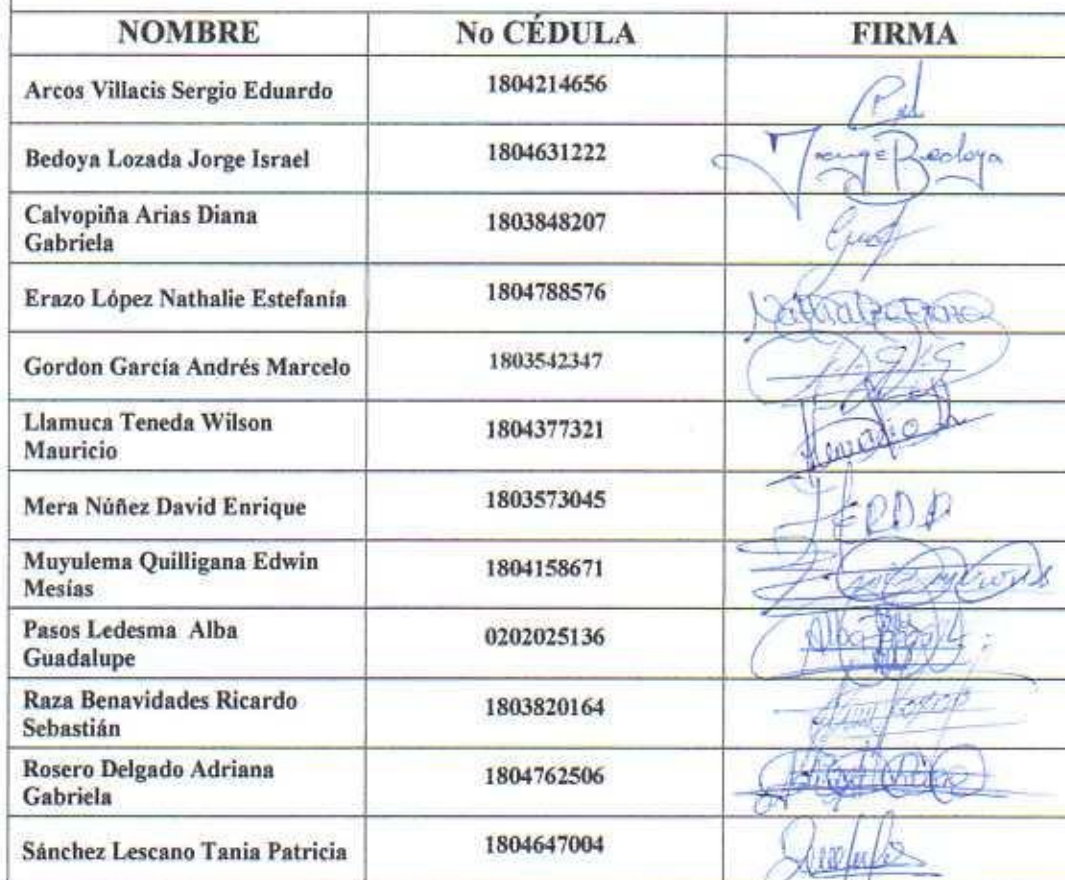 NOMBRE No CÉDULA FIRMA
Arcos Villacis Sergio Eduardo 1804214656
Bedoya Lozada Jorge Israel 1804631222 Jorge Bedoya
Calvopiña Arias Diana
Gabriela 1803848207
Erazo López Nathalie Estefanía 1804788576
Gordon García Andrés Marcelo 1803542347
Llamuca Teneda Wilson
Mauricio 1804377321
Mera Núñez David Enrique 1803573045
Muyulema Quilligana Edwin
Mesías 1804158671
Pasos Ledesma Alba
Guadalupe 0202025136 Alba
Raza Benavidades Ricardo
Sebastián 1803820164
Rosero Delgado Adriana
Gabriela 1804762506
Sánchez Lescano Tania Patricia 1804647004